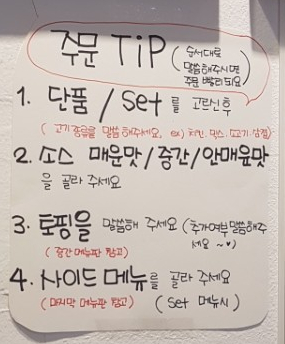 주문 TiP (순서대로
말씀해주시면
주문 빨리되요)
1. 단품 / Set 를 고르신후
(고기종류를 말씀해주세요. ex) 치킨. 믹스. 소고기. 삼겹)
2. 소스 매운맛/중간/안매운맛
을 골라 주세요
3. 토핑을 말씀해 주세요 (추가여부말씀해주
세요 ~♥)
(중간메뉴판 참고)
4. 사이드 메뉴를 골라 주세요
(마지막 메뉴판 참고) (Set 메뉴시)